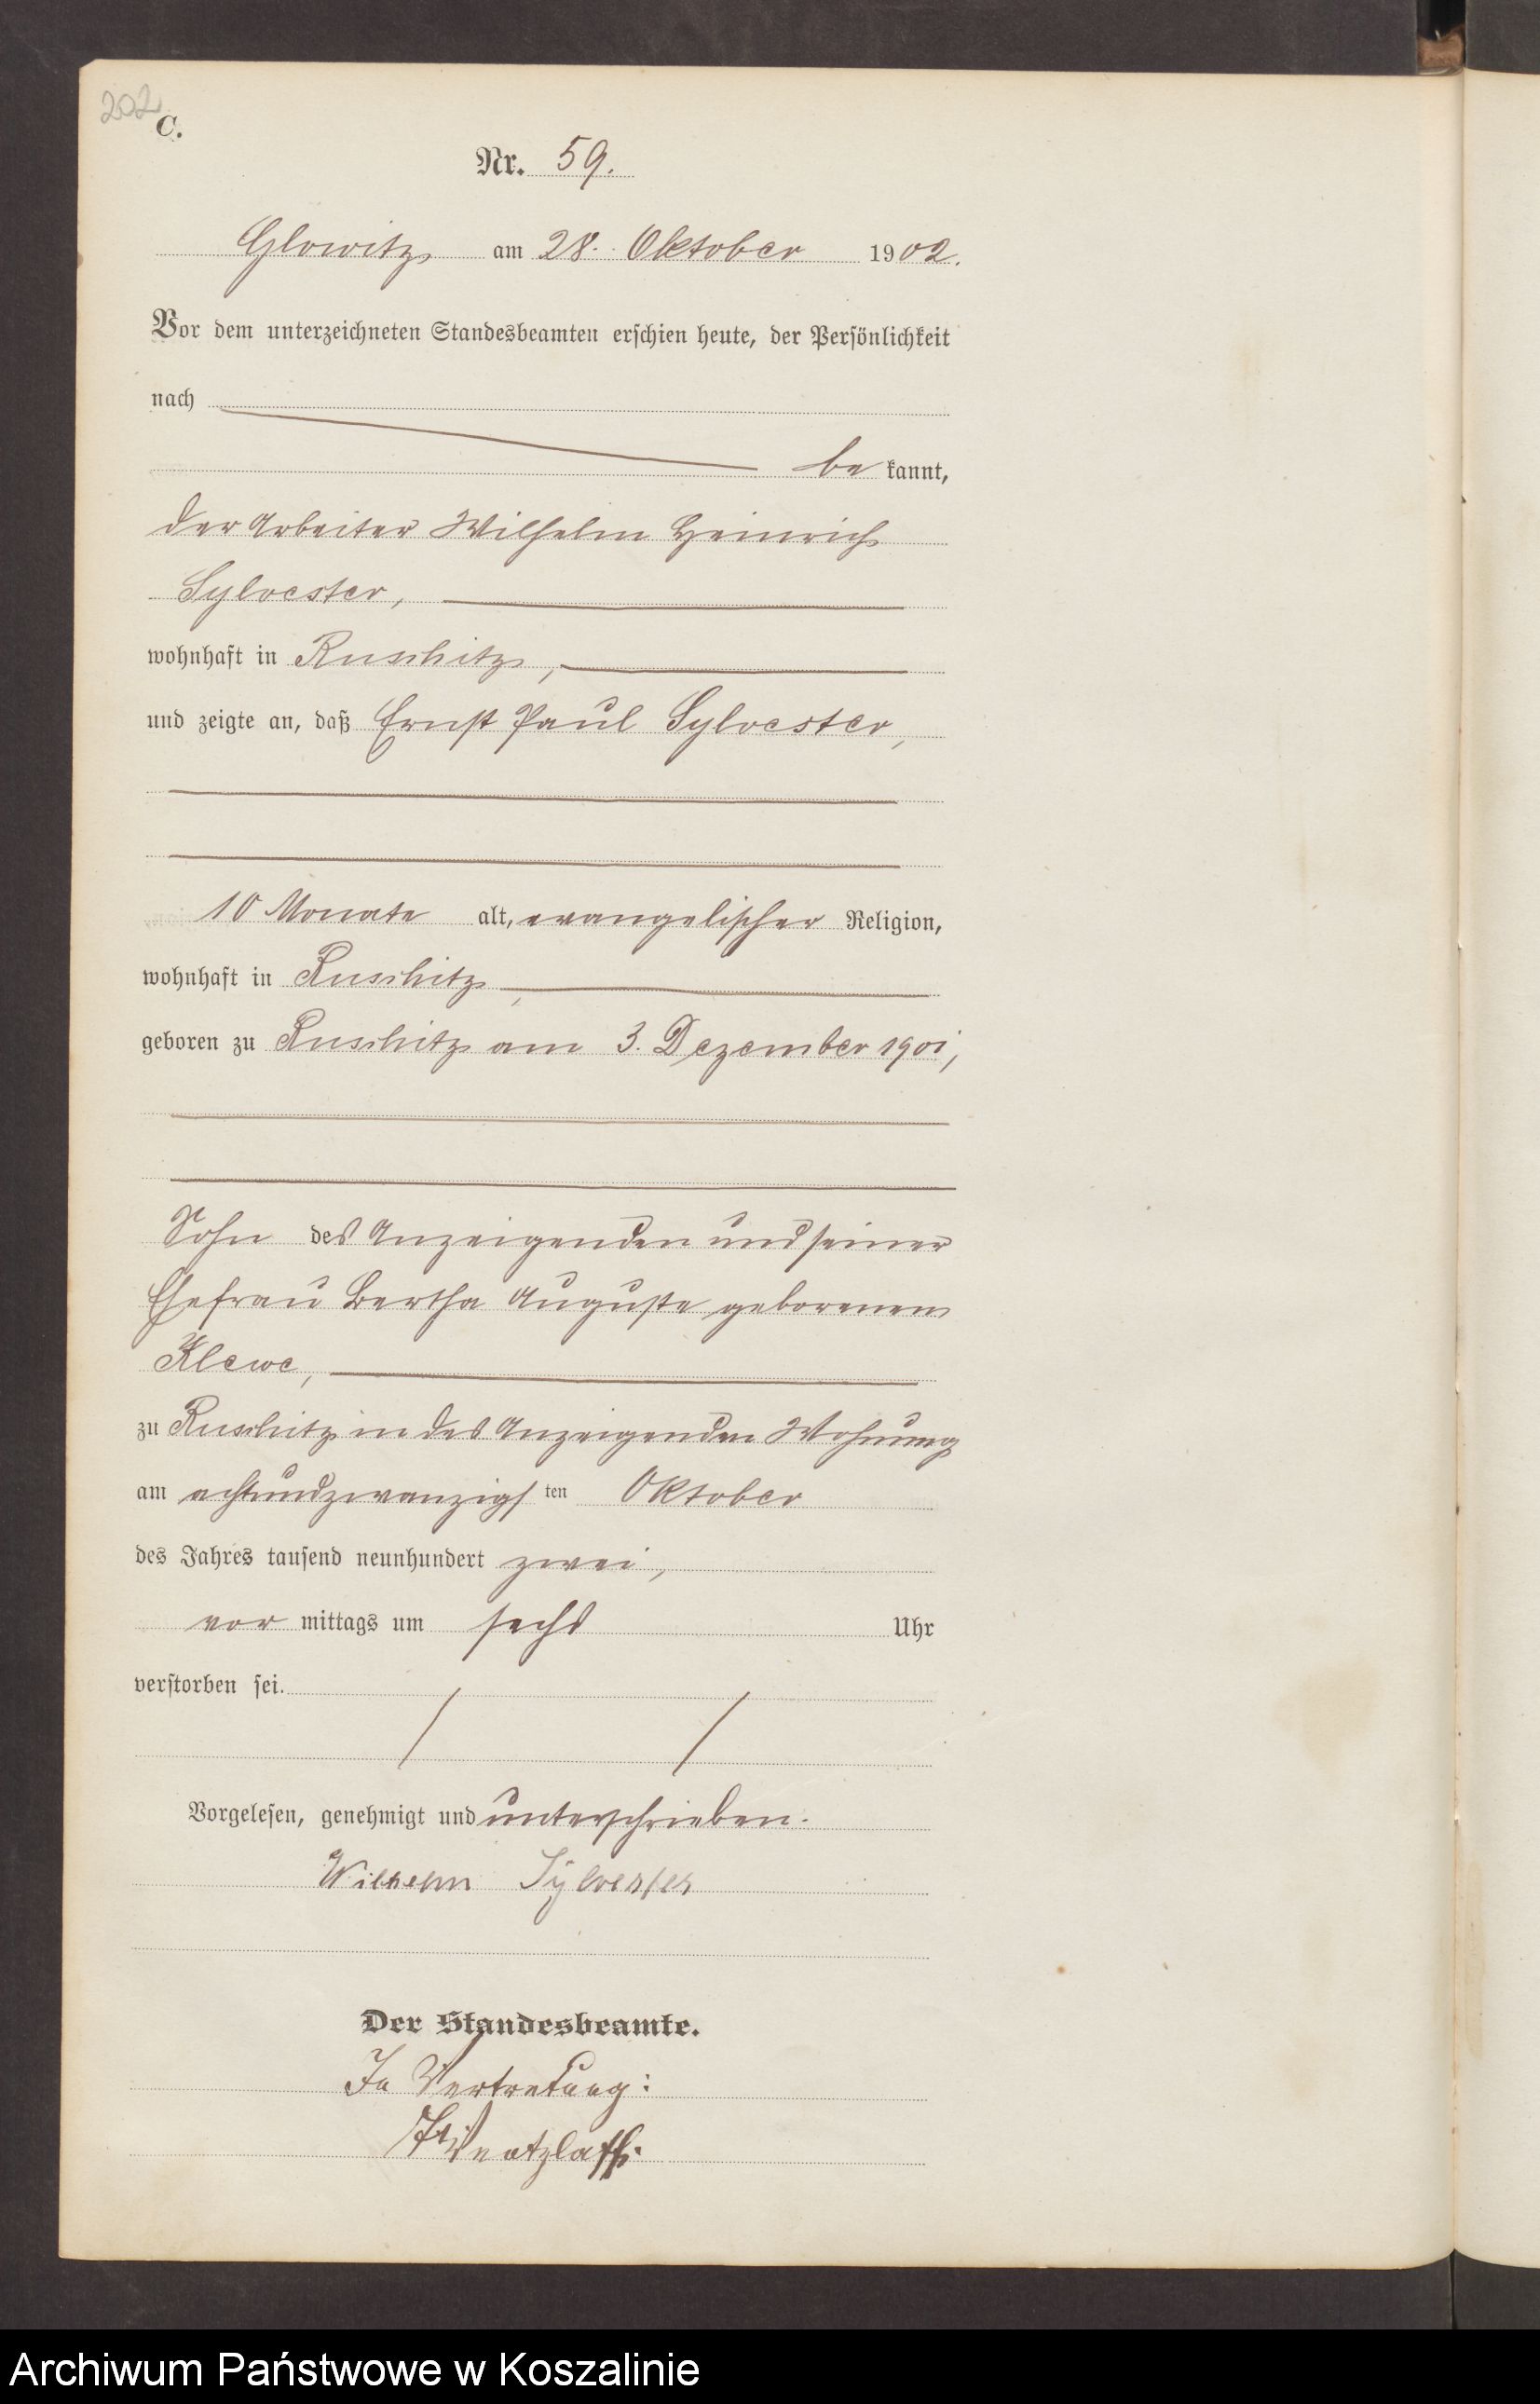 202
C.
Nr. 59.
Glowitz am 28. Oktober 1902.
Vor dem unterzeichneten Standesbeamten erschien heute, der Persönlichkeit
nach
be kannt,
der Arbeiter Wilhelm Heinrich
Sylvester,
wohnhaft in Ruschitz,
und zeigte an, daß Ernst Paul Sylvester,
10 Monate alt, evangelischer Religion,
wohnhaft in Ruschitz,
geboren zu Ruschitz am 3. Dezember 1901,
Sohn des Anzeigenden und seiner
Ehefrau Bertha Auguste geborenen
Klewe,
zu Ruschitz in des Anzeigenden Wohnung
am achtundzwanzigsten Oktober
des Jahres tausend neunhundert zwei,
vor mittags um sechs Uhr
verstorben sei.
Vorgelesen, genehmigt und unterschrieben.
Wilhelm Sylvester
Der Standesbeamte.
In Vertretung:
Archiwum Państwowe w Koszalinie